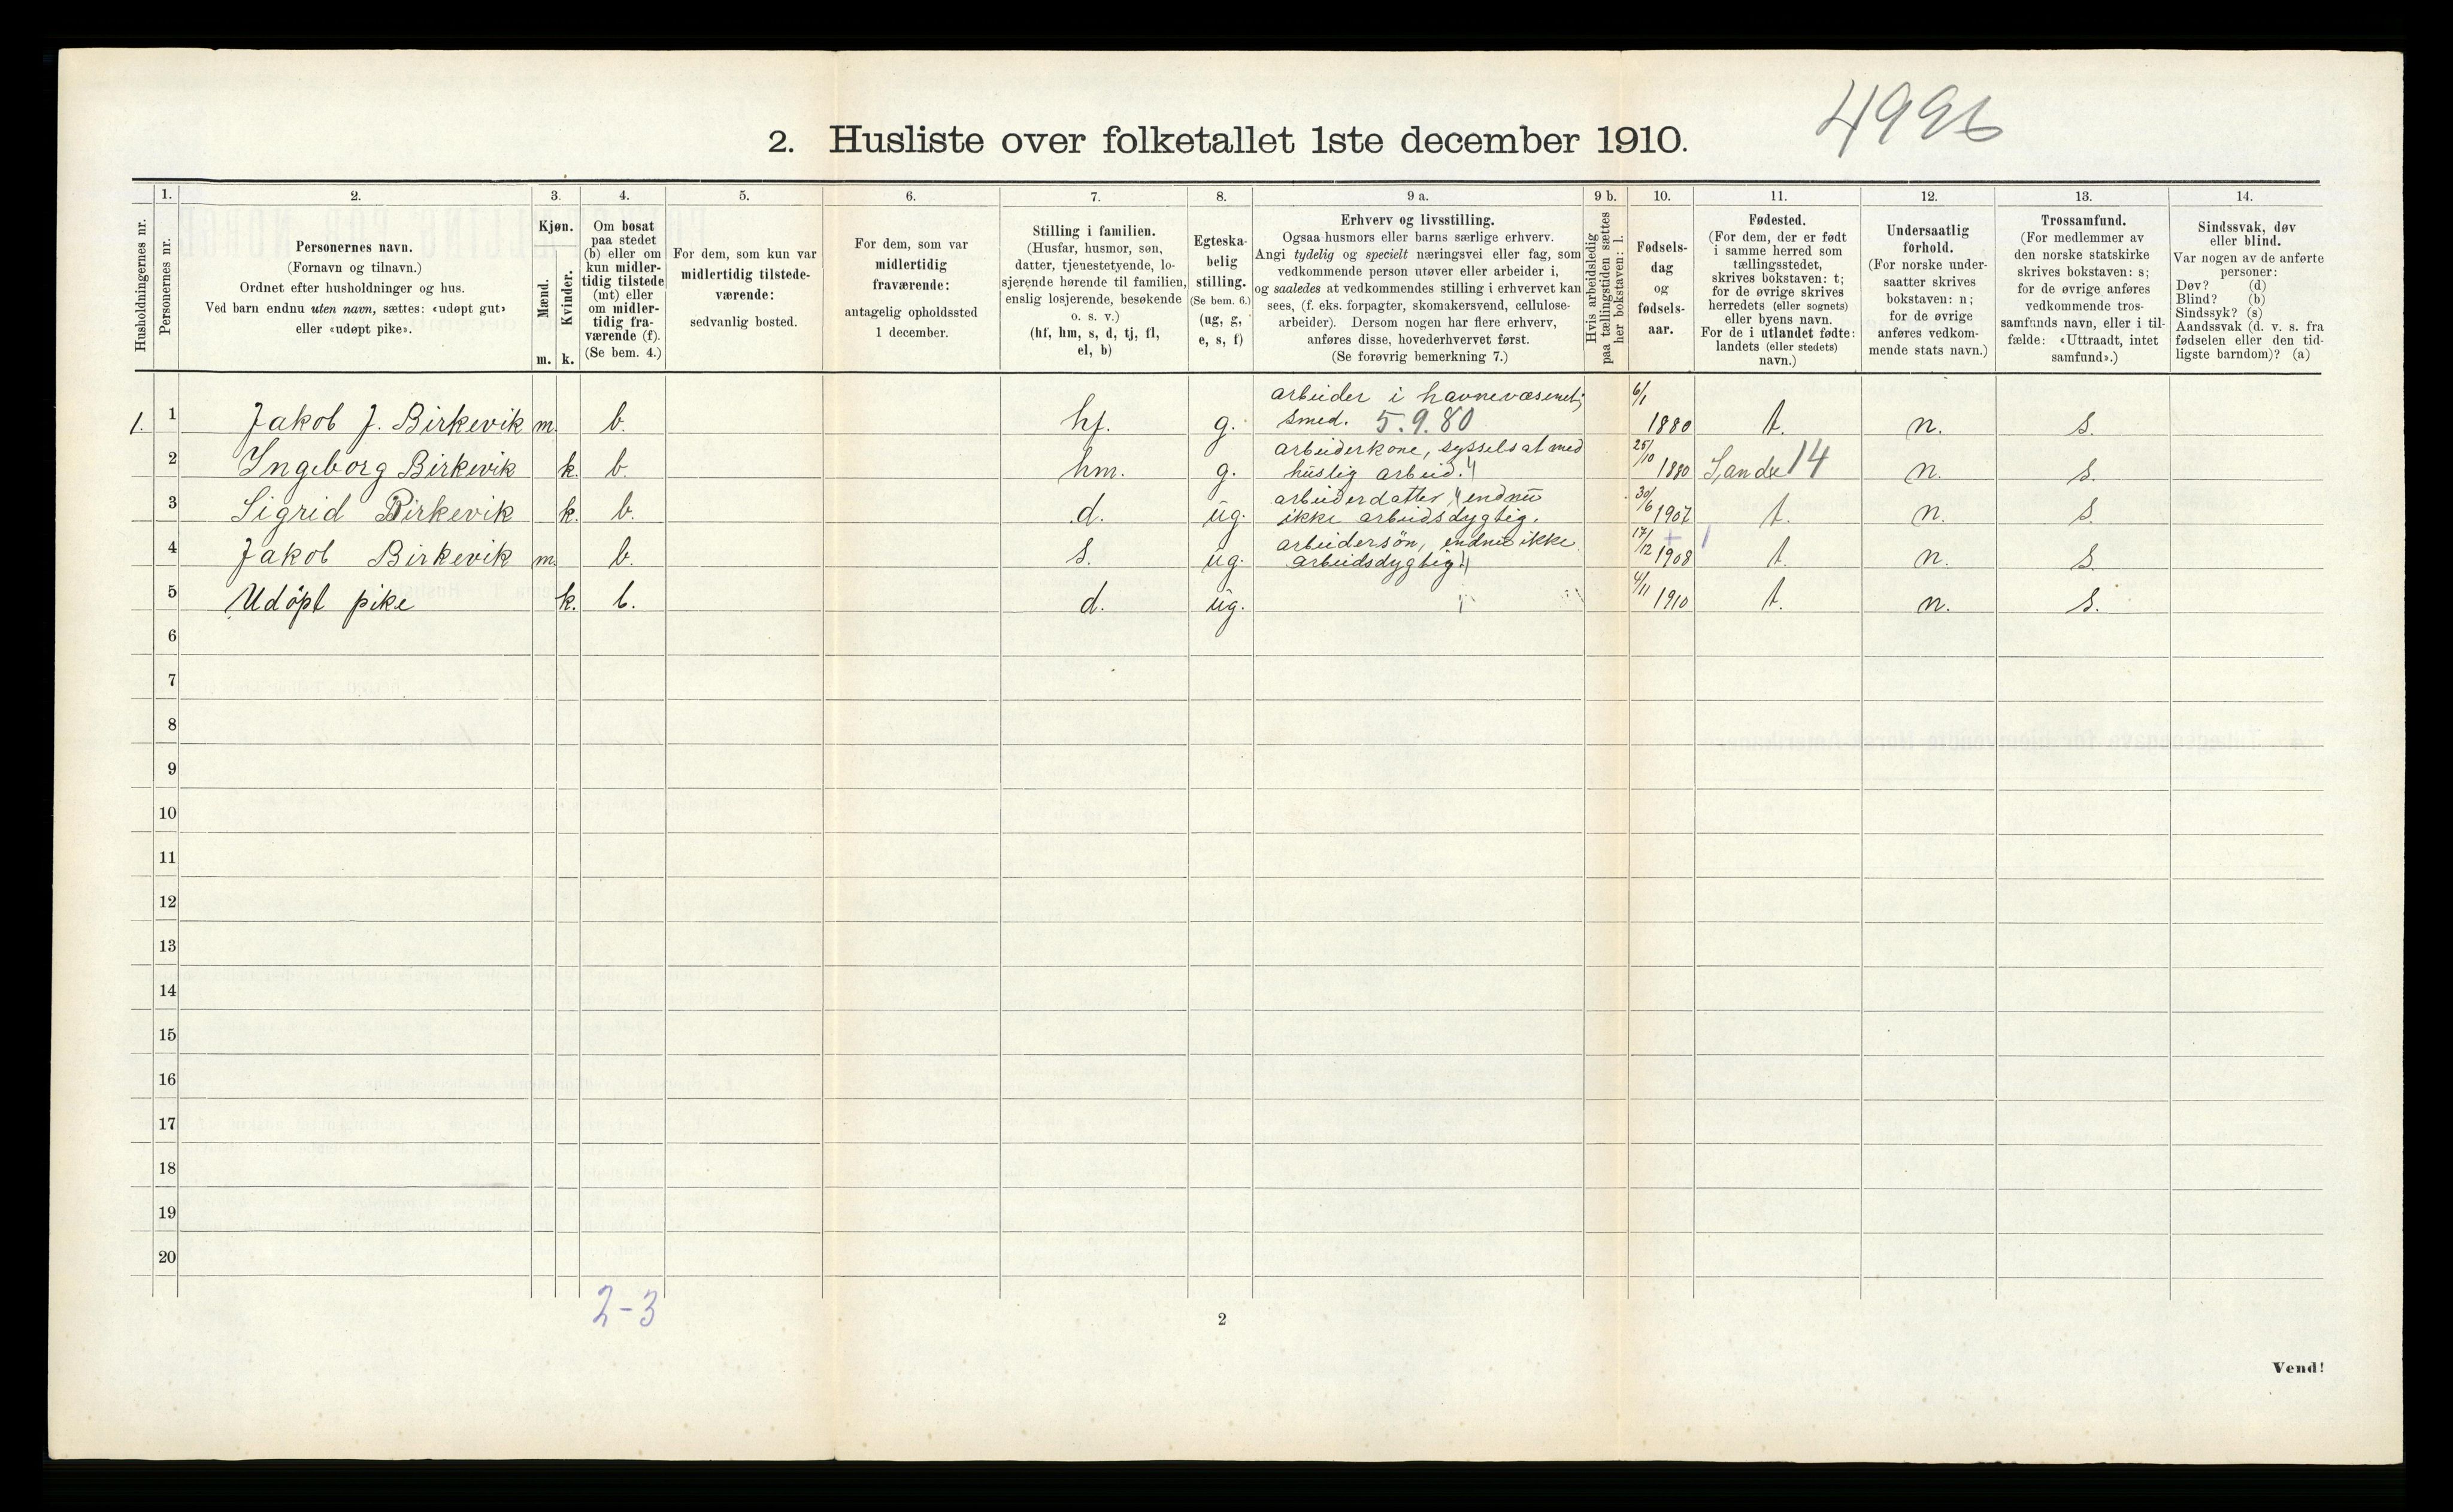 4996
2. Husliste over folketallet 1ste december 1910.
Husholdningernes nr.
1.
Personernes nr.
2.
Personernes navn.
(Fornavn og tilnavn.)
Ordnet efter husholdninger og hus.
Ved barn endnu uten navn, sættes: «udøpt gut»
eller «udøpt pike».
3.
Kjøn.
Mænd.
m.
Kvinder.
k.
4.
Om bosat
paa stedet
(b) eller om
kun midler-
tidig tilstede
(mt) eller
om midler-
tidig fra-
værende (f).
(Se bem. 4.)
5.
For dem, som kun var
midlertidig tilstede-
værende:
sedvanlig bosted.
6.
For dem, som var
midlertidig
fraværende:
antagelig opholdssted
1 december.
7.
Stilling i familien.
(Husfar, husmor, søn,
datter, tjenestetyende, lo-
sjerende hørende til familien,
enslig losjerende, besøkende
o. s. v.)
(hf, hm, s, d, tj, fl,
el, b)
8.
Egteska-
belig
stilling.
(Se bem. 6.)
(ug, g,
e, s, f)
9 a.
Erhverv og livsstilling.
Ogsaa husmors eller barns særlige erhverv.
Angi tydelig og specielt næringsvei eller fag, som
vedkommende person utøver eller arbeider i,
og saaledes at vedkommendes stilling i erhvervet kan
sees, (f. eks. forpagter, skomakersvend, cellulose-
arbeider). Dersom nogen har flere erhverv,
anføres disse, hovederhvervet først.
(Se forøvrig bemerkning 7.)
9 b.
Hvis arbeidsledig
paa tællingstiden sættes
her bokstaven: l.
10.
Fødsels-
dag
og
fødsels-
aar.
11.
Fødested.
(For dem, der er født
i samme herred som
tællingsstedet,
skrives bokstaven: t;
for de øvrige skrives
herredets (eller sognets)
eller byens navn.
For de i utlandet fødte:
landets (eller stedets)
navn.)
12.
Undersaatlig
forhold.
(For norske under-
saatter skrives
bokstaven: n;
for de øvrige
anføres vedkom-
mende stats navn.)
13.
Trossamfund.
(For medlemmer av
den norske statskirke
skrives bokstaven: s;
for de øvrige anføres
vedkommende tros-
samfunds navn, eller i til-
fælde: «Uttraadt, intet
samfund».)
14.
Sindssvak, døv
eller blind.
Var nogen av de anførte
personer:
Døv? (d)
Blind? (b)
Sindssyk? (s)
Aandssvak (d. v. s. fra
fødselen eller den tid-
ligste barndom)? (a)
arbeider i havnevæsenet;
1. 1 Jakob J. Birkevik m. b. hf. g. smed. 5.9.80 6/1 1880 t. n. s.
arbeiderkone, sysselsat med
2 Ingeborg Birkevik k. b. hm. g. huslig arbeid. 25/10 1880 Sande 14 n. s.
arbeiderdatter, endnu
3 Sigrid Birkevik k. b. d. ug. ikke arbeidsdygtig. 30/6 1907 t. n. s.
arbeidersön, endnu ikke
4 Jakob Birkevik m. b. s. ug. arbeidsdygtig. 17/12 1908 t. n. s.
5 Udöpt pike k. b. d. ug. 4/11 1910 t. n. s.
6
7
8
9
10
11
12
13
14
15
16
17
18
19
20
2-3
2
Vend!